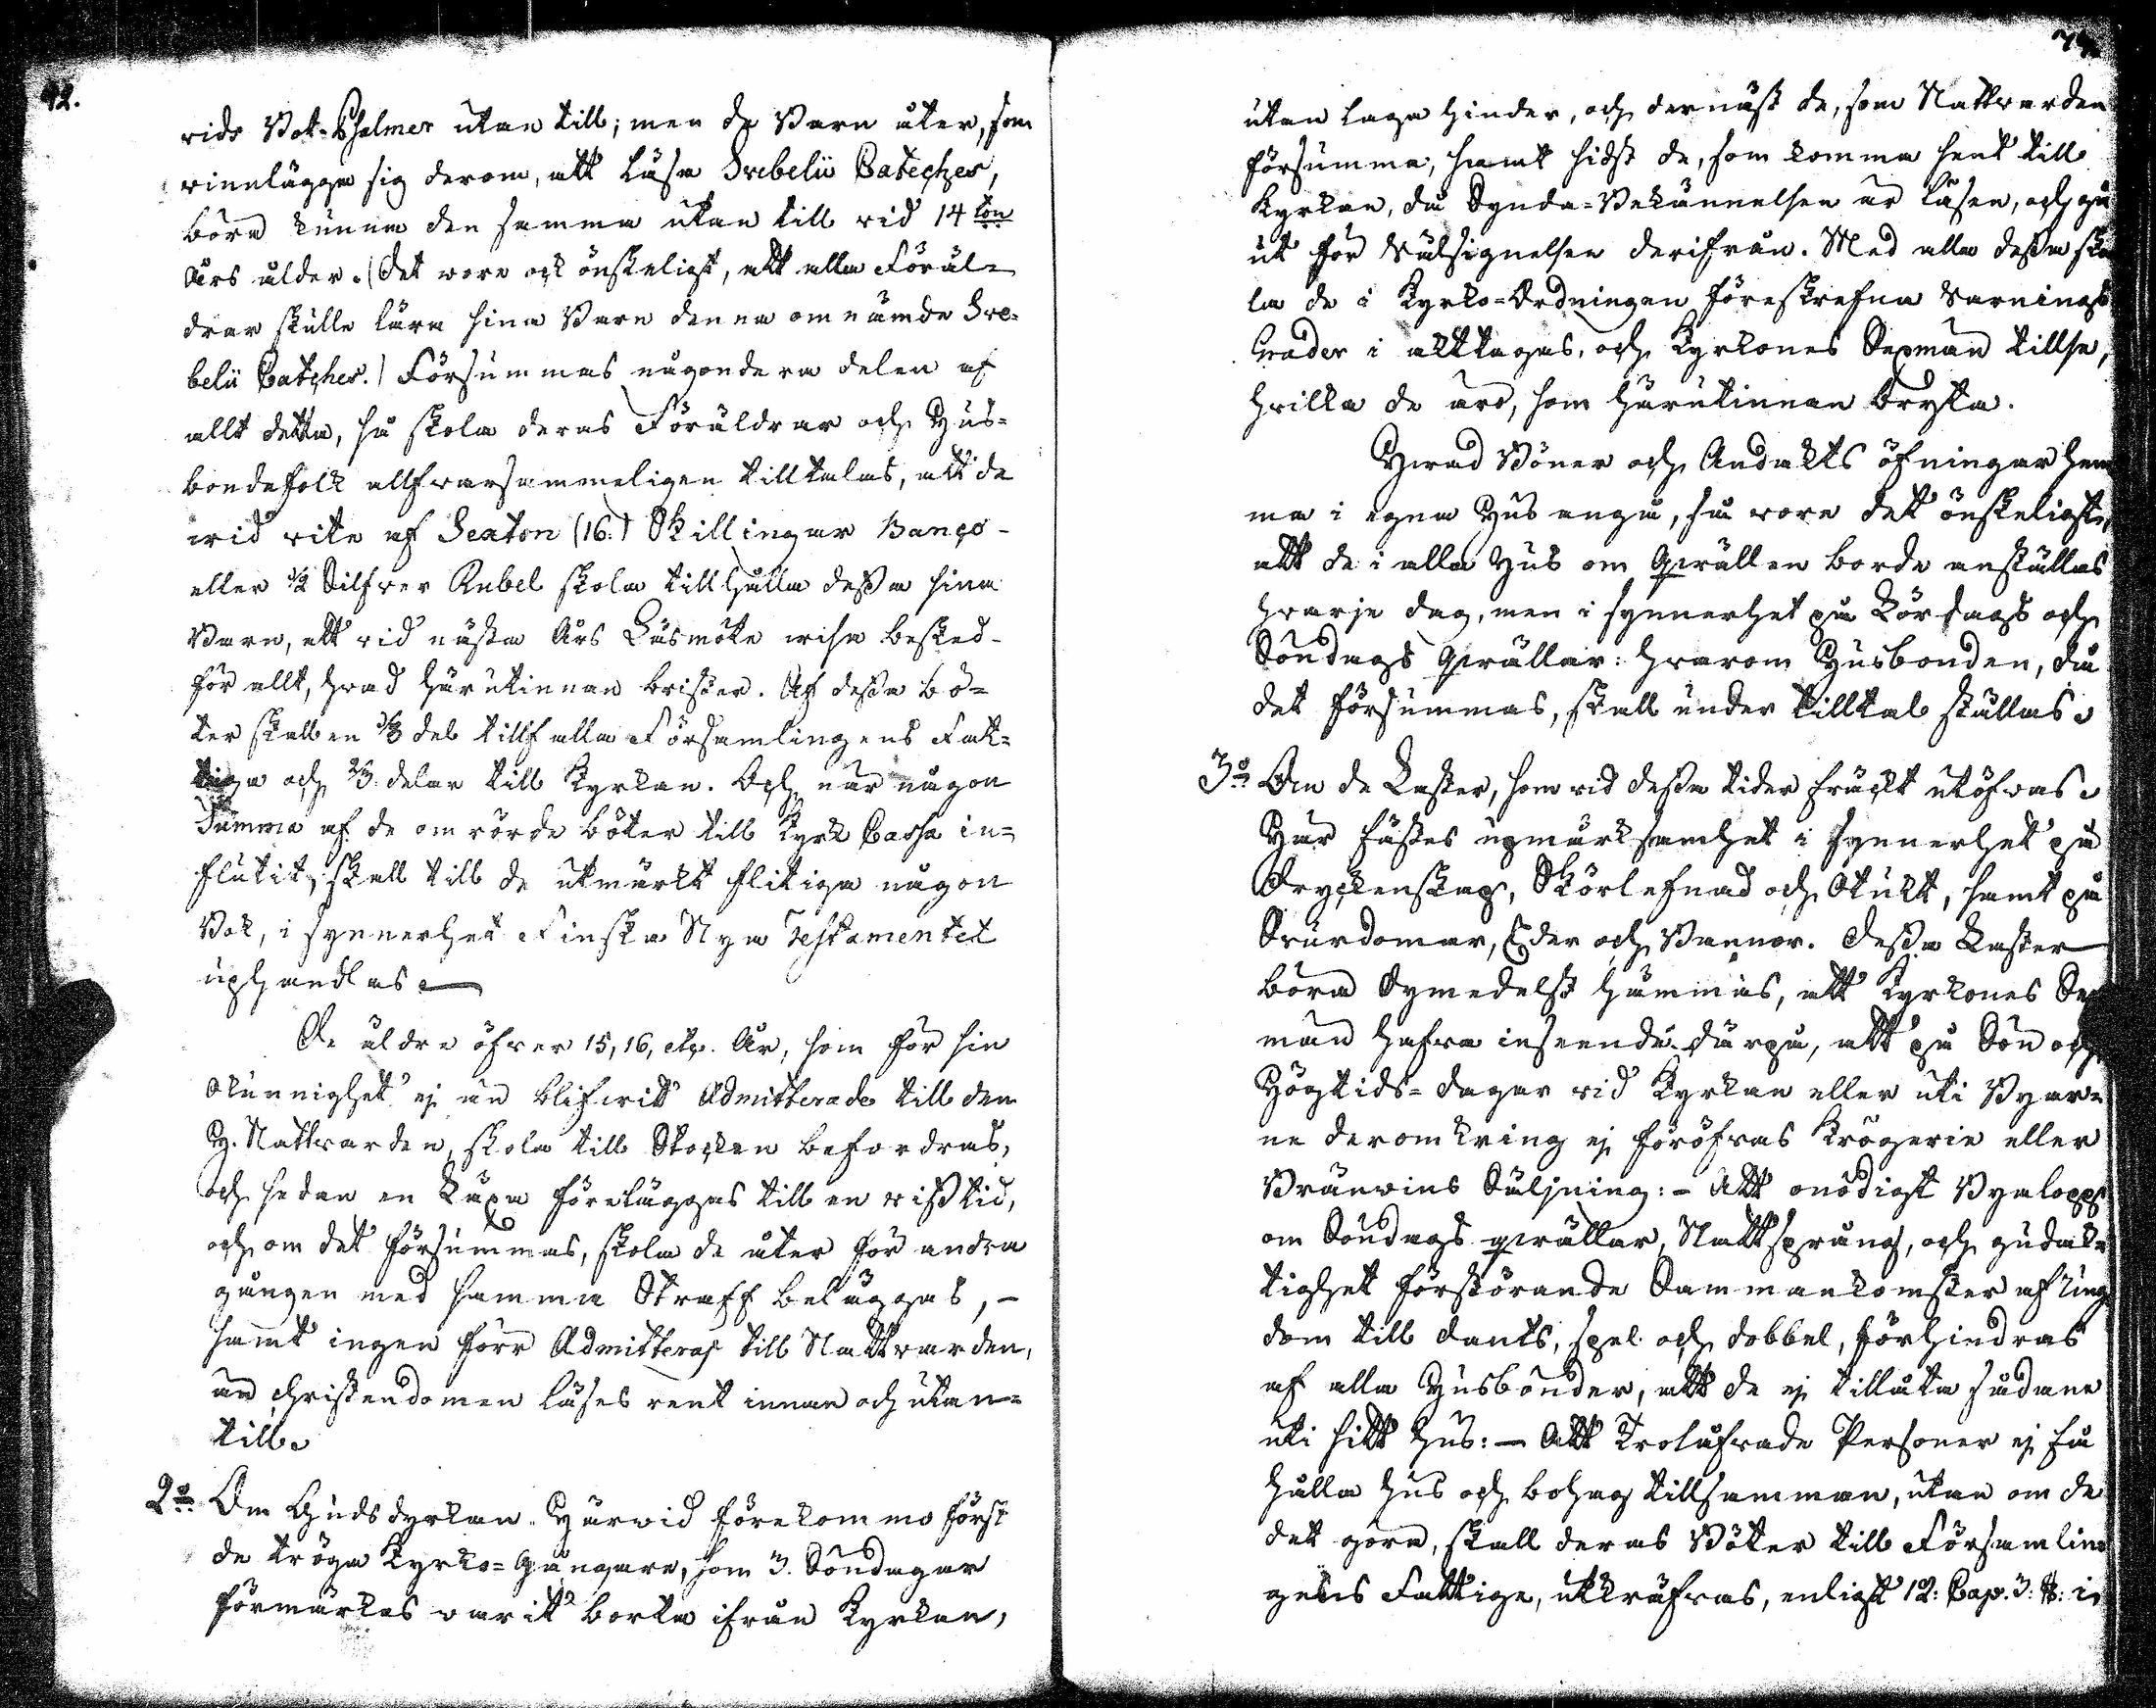 42.
vids Bot-Psalmer utan till; men de Barn åter, som
vinnlägga sig derom, att läsa Svebelii Cateches,
böra kunna den samma utan till vid 14 ton
Års ålder. (Det wore ock önskeligt, att alla Föräl-
drar skulle lära sina Barn denna omnämde Sve-
belii Catches.) Försummas någondera delen af
allt detta, så skola deras Föräldrar och Hus-
bondefolk allfvarsammeligen tilltalas, att de
wid vite af Sexton (16.) Skillingar Banco -
eller 1/2 Silfver Rubel skola tillhålla dessa sina
Barn, att vid nästa Års Läsmöte wisa besked-
för allt, hvad härutinnan brister. Af dessa bö-
ter skall en 1/3 del tillfalla Församlingens Fat-
tiga och 2/3 delar till Kyrkan. Och när någon
Summa af de omrörde böter till Kyrk Cassa in-
flutit, skall till de utmärkt flitiga någon
Bok, i synnerhet Finska Nya Testamentet
uphandlas.
De äldre öfver 15, 16, etc. År, som för sin
okunnighet ej än blifwit Admitterade till den
H. Nattvarden, skola till Stocken befordras,
och sedan en Läxa föreläggas till en viss tid,
och om det försummas, skola de åter för andra
gången med samma Straff beläggas, -
samt ingen förr Admitteras till Nattvarden,
än christendomen läses rent innan och utan-
till.
2o Om Gudsdyrkan. Härvid förekommo först
de tröga Kyrko-Gångare, som 3. Söndagar
förmärkas varit borta ifrån Kyrkan,
utan laga hinder, och dernäst de, som Nattvarden
försumma, samt sidst de, som komma sent till
Kyrkan, då Synda-Bekännelsen är läsen, och gå
ut för Välsignelsen derifrån. Med alla dessa sko
la de i Kyrko-Ordningen föreskrefna Varnings
Grader i akttagas, och Kyrkones Sexmän tillse,
hvilka de äro, som härutinnan bryta.
Hvad Böner och Andakts öfningar hem
ma i egna Hus angå, så vore det önskeligt,
att de i alla Hus om qvällen borde anställas
hvarje dag, men i synnerhet på Lördags och
Söndags qvällar: hvarom Husbonden, då
det försummas, skall under tilltal ställas.
3o Om de Laster, som vid dessa tider fräckt utöfvas.
Här fästes upmärksamhet i synnerhet på
Dryckenskap, Skörlefnad och Otukt, samt på
Svärdomar, Eder och Bannor. Dessa Laster
böra dymedelst hämmas, att Kyrkones Sex
män hafva inseende därpå, att på Sön och
Högtids-dagar vid Kyrkan eller uti Byar-
ne deromkring ej föröfvas Krögerie eller
Bränvins Säljning: - Att onödigt Byalopp
om Söndags qvällar, Nattsprång, och gudak-
tighet förstörande Sammankomster af Ung
dom till dants, spel och dobbel, förhindras
af alla Husbönder, att de ej tillåta sådane
uti sitt Hus: - Att Trolåfvade Personer ej få
hålla Hus och bohag tillsamman, utan om de
det göra, skall deras Böter till Församlin
gens Fattige, utkräfvas, enligt 12: Cap. 3. §: i